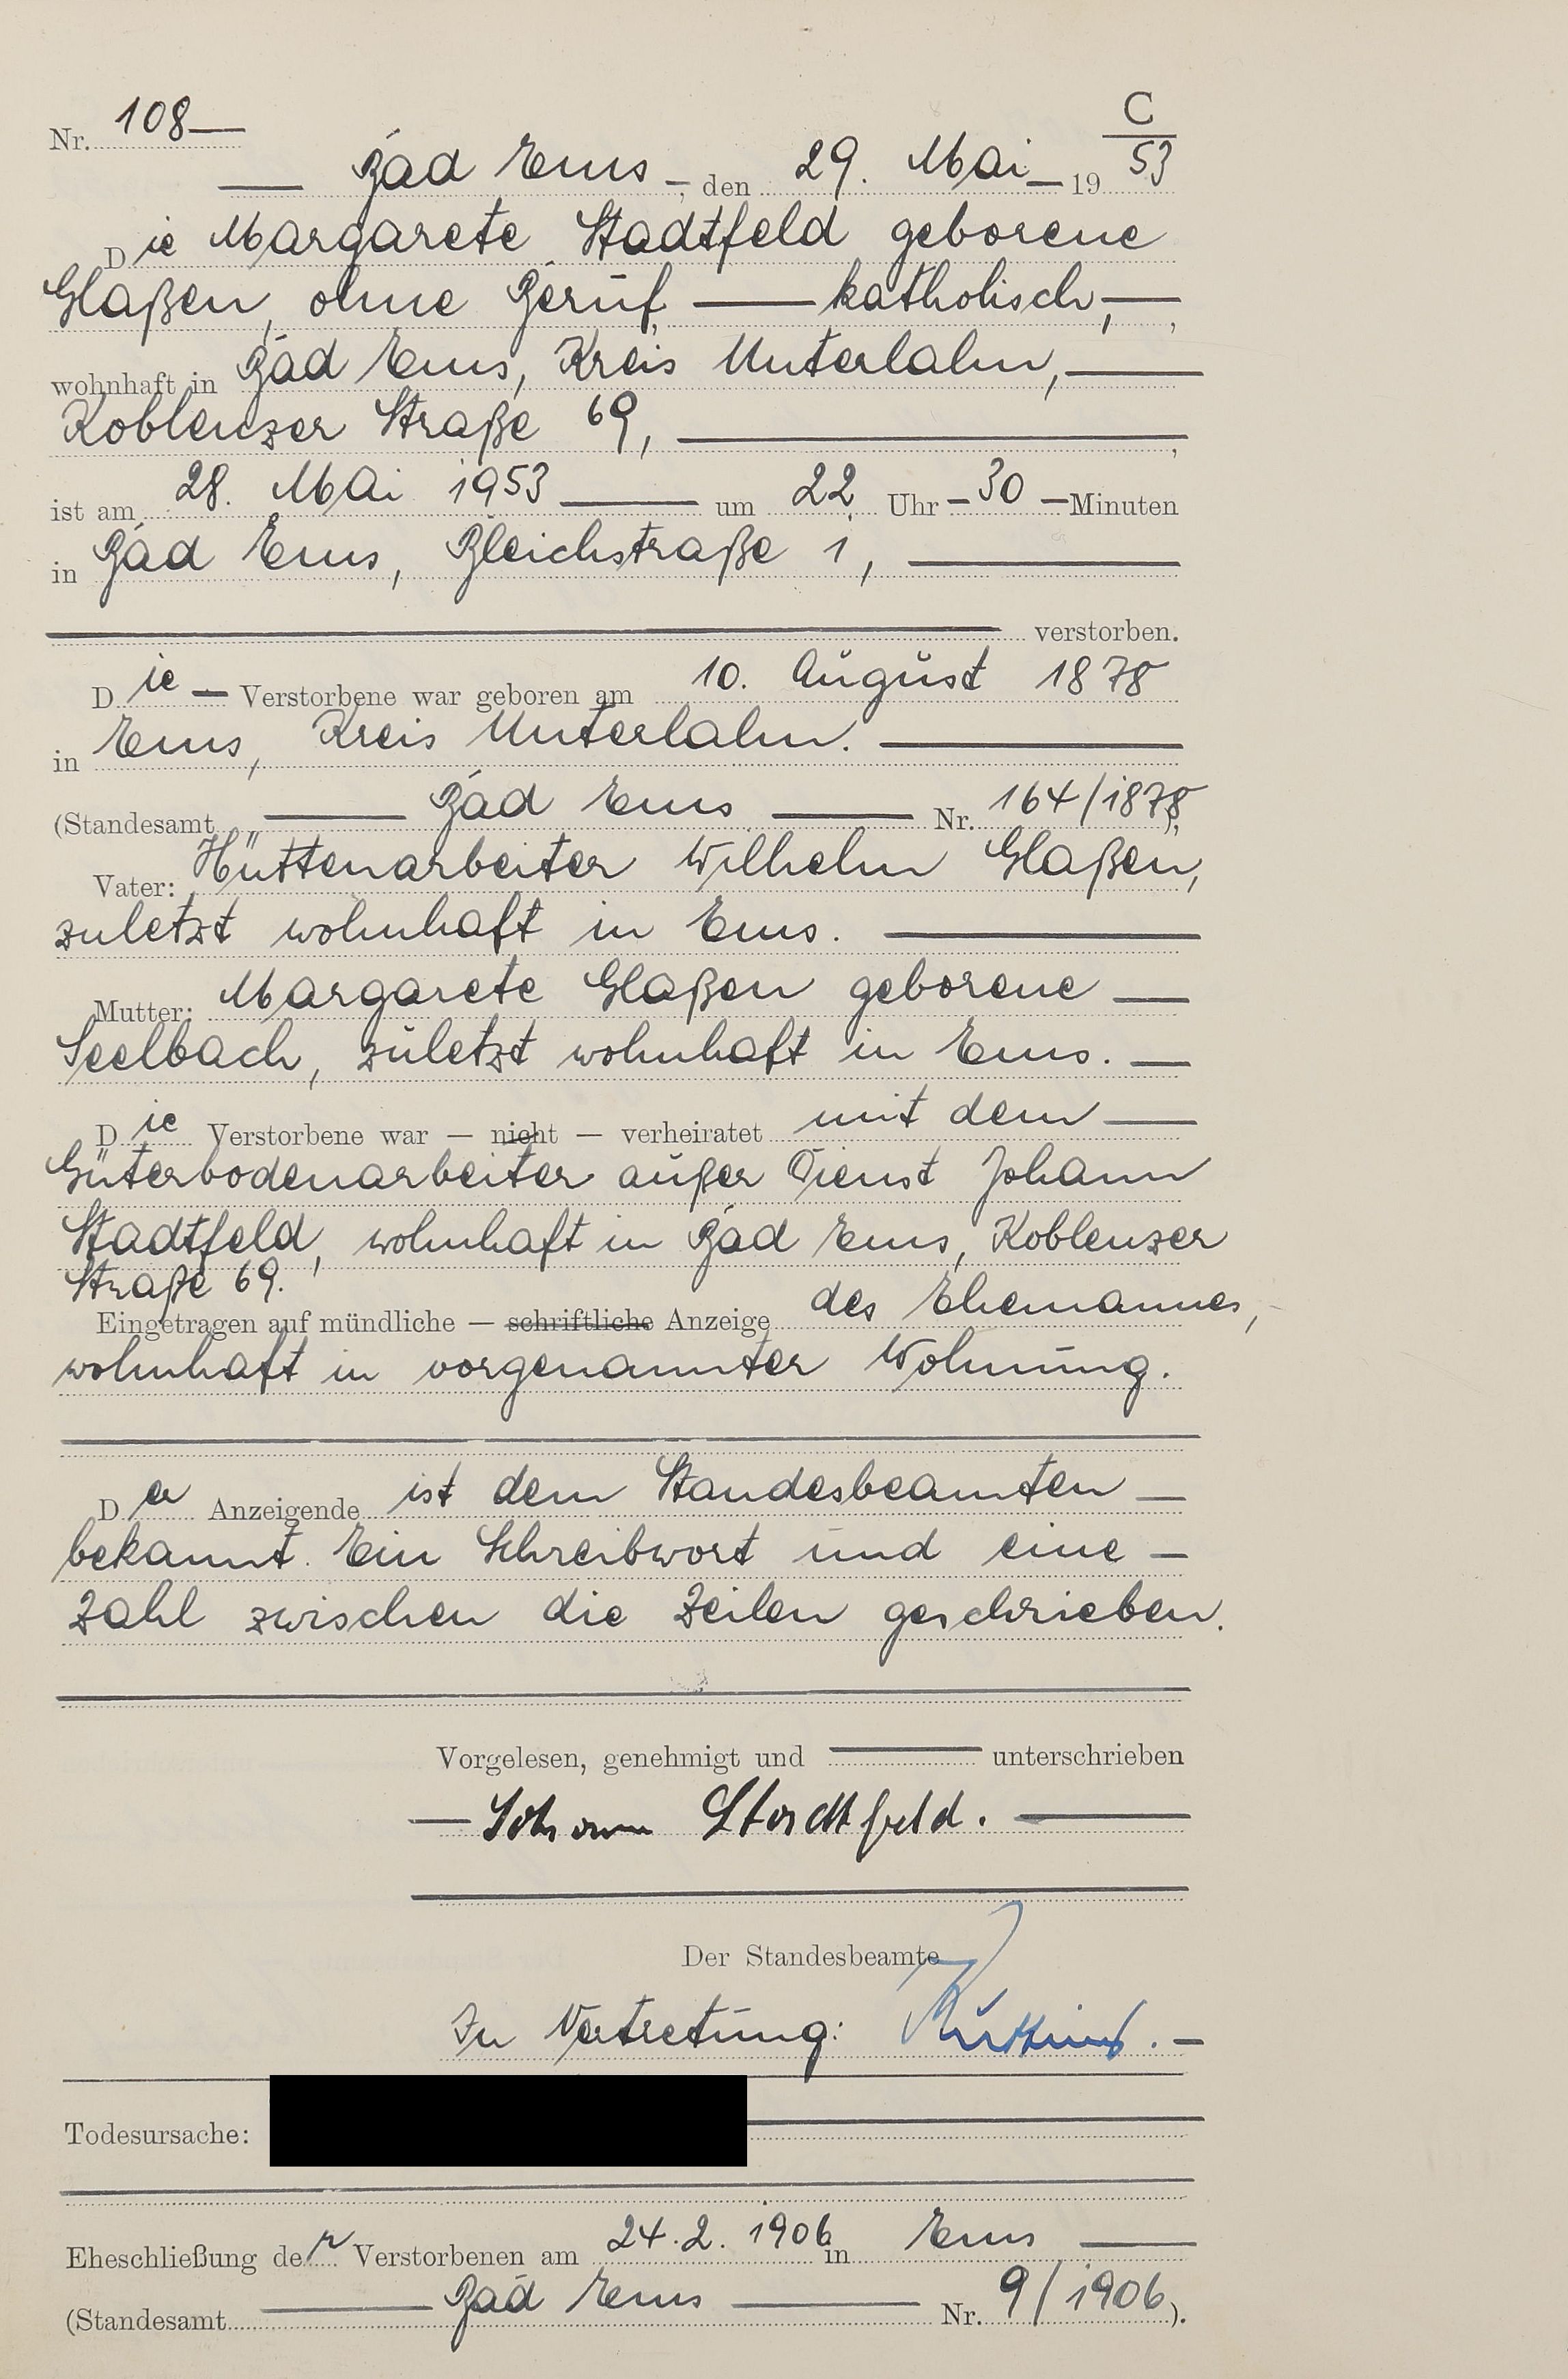 C
Nr. 108
Bad Ems, den 29. Mai 1953
Die Margarete Stadtfeld geborene
Glaßen, ohne Beruf, katholisch,
wohnhaft in Bad Ems, Kreis Unterlahn,
Koblenzer Straße 69,
ist am 28. Mai 1953 um 22 Uhr 30 Minuten
in Bad Ems, Bleichstraße 1,
verstorben.
Die Verstorbene war geboren am 10. August 1878
in Ems, Kreis Unterlahn.
(Standesamt Bad Ems Nr. 164/1878)
Vater: Hüttenarbeiter Wilhelm Glaßen,
zuletzt wohnhaft in Ems.
Mutter: Margarete Glaßen geborene
Seelbach, zuletzt wohnhaft in Ems.
Die Verstorbene war — nicht — verheiratet mit dem
Güterbodenarbeiter außer Dienst Johann
Stadtfeld, wohnhaft in Bad Ems, Koblenzer
Straße 69.
Eingetragen auf mündliche — schriftliche Anzeige des Ehemannes,
wohnhaft in vorgenannter Wohnung.
Der Anzeigende ist dem Standesbeamten
bekannt. Ein Schreibwort und eine
Zahl zwischen die Zeilen geschrieben.
Vorgelesen, genehmigt und unterschrieben
Johann Stadtfeld.
Der Standesbeamte
In Vertretung:
Todesursache:
Eheschließung der Verstorbenen am 24.2.1906 in Ems
(Standesamt Bad Ems Nr. 9/1906).